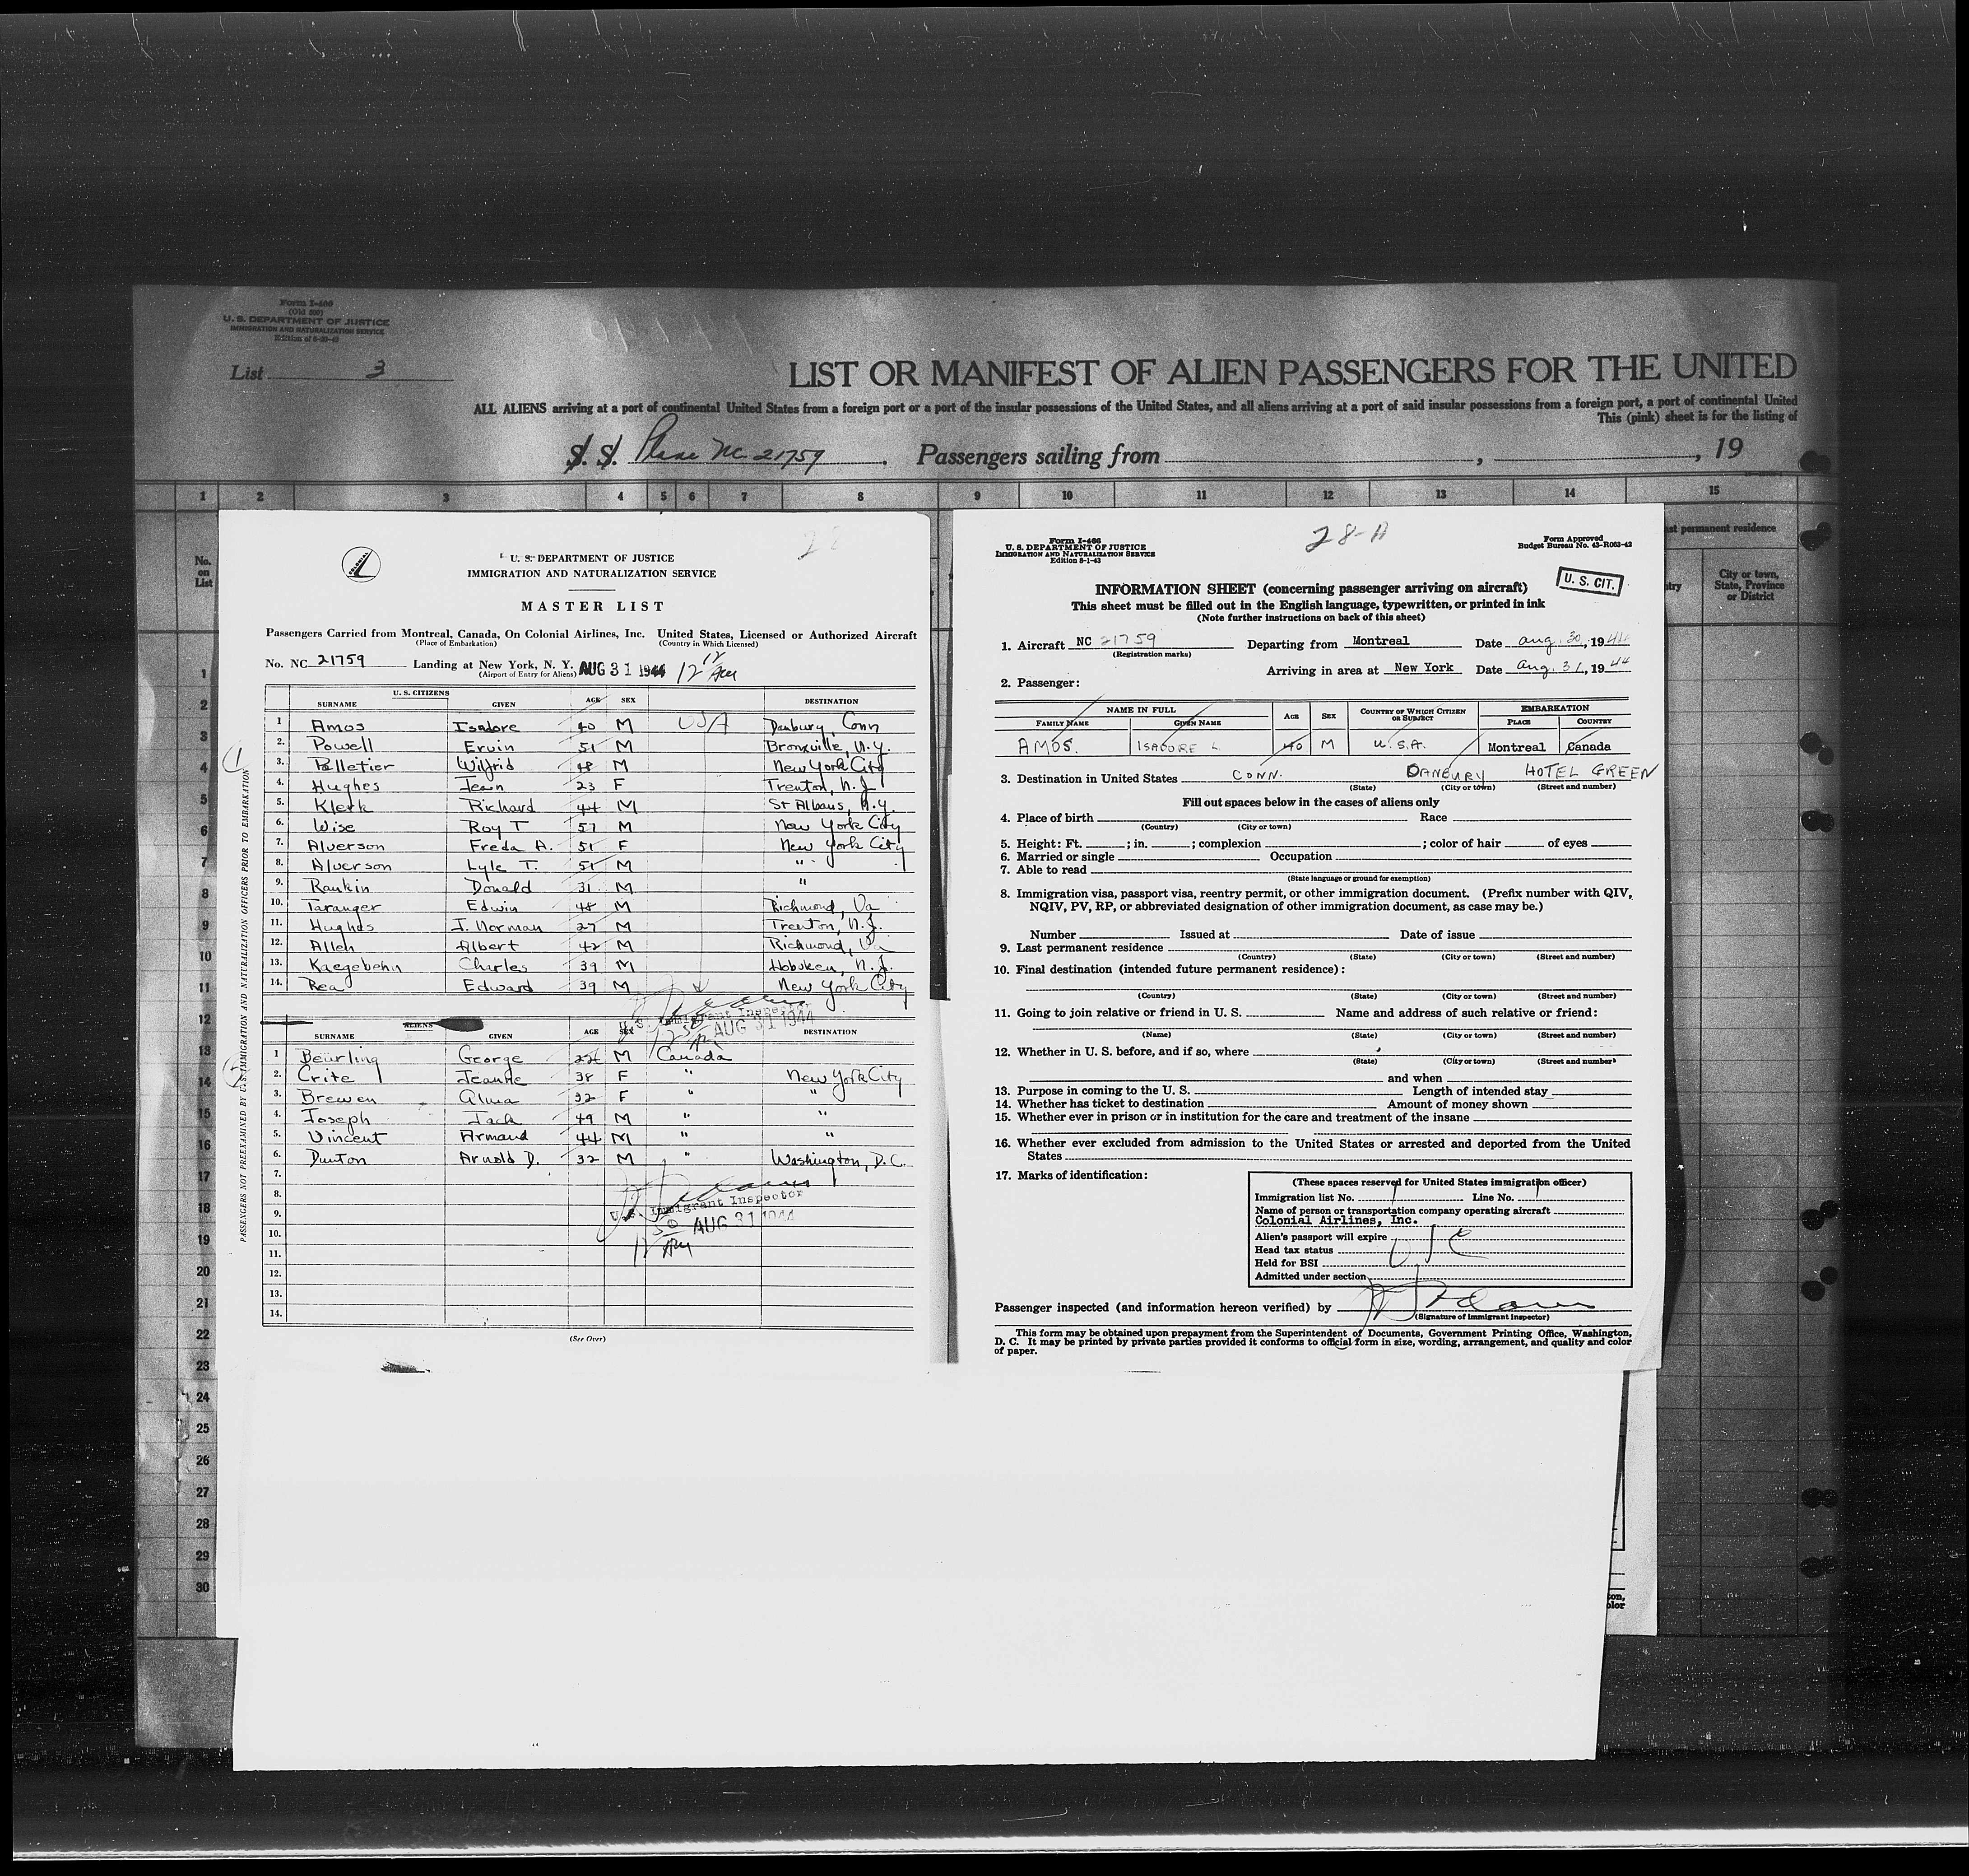 Form I-400
(Old 500)
U. S. DEPARTMENT OF JUSTICE
IMMIGRATION AND NATURALIZATION SERVICE
List 3
LIST OR MANIFEST OF ALIEN PASSENGERS FOR THE UNITED
ALL ALIENS arriving at a port of continental United States from a foreign port or a port of the insular possessions of the United States, and all aliens arriving at a port of said insular possessions from a foreign port, a port of continental United
This (pink) sheet is for the listing of
S. S. Plane NC 21759 . Passengers sailing from , , 19
1 2 3 4 5 6 7 8 9 10 11 12 13 14 15
No. on List
1
2
3
4
5
6
7
8
9
10
11
12
13
14
15
16
17
18
19
20
21
22
23
24
25
26
27
28
29
30
PASSENGERS NOT PREEXAMINED BY U.S. IMMIGRATION AND NATURALIZATION OFFICERS PRIOR TO EMBARKATION
COLONIAL
28
U. S. DEPARTMENT OF JUSTICE
IMMIGRATION AND NATURALIZATION SERVICE
MASTER LIST
Passengers Carried from Montreal, Canada, On Colonial Airlines, Inc. United States, Licensed or Authorized Aircraft
(Place of Embarkation) (Country in Which Licensed)
No. NC 21759 Landing at New York, N. Y. AUG 31 1944 12 17 AM
(Airport of Entry for Aliens)
U. S. CITIZENS
SURNAME GIVEN AGE SEX DESTINATION
1 Amos Isadore 40 M USA Danbury, Conn
2. Powell Ervin 51 M Bronxville, N.Y.
3. Pelletier Wilfrid 48 M New York City
4. Hughes Jean 23 F Trenton, N.J
5. Klerk Richard 44 M St Albans, N.Y.
6. Wise Roy T 57 M New York City
7. Alverson Freda A. 51 F New York City
8. Alverson Lyle T. 51 M "
9. Rankin Donald 31 M "
10. Taranger Edwin 48 M Richmond, Va
11. Hughes J. Norman 27 M Trenton, N.J.
12. Allen Albert 42 M Richmond, Va
13. Kaegebehn Charles 39 M Hoboken, N.J.
14. Rea Edward 39 M New York City
U.S. Immigrant Inspector
AUG 31 1944
ALIENS
SURNAME GIVEN AGE SEX DESTINATION
1 Beurling George 22 M Canada
2. Crite Jeanne 38 F " New York City
3. Brewen Alma 32 F " "
4. Joseph Jack 49 M " "
5. Vincent Armand 44 M " "
6. Dunton Arnold D. 32 M " Washington, D.C.
7.
8.
9.
10.
11.
12.
13.
14.
U.S. Immigrant Inspector
AUG 31 1944
12 50 AM
(See Over)
Form I-466
U. S. DEPARTMENT OF JUSTICE
IMMIGRATION AND NATURALIZATION SERVICE
Edition 8-1-43
28-A
Form Approved
Budget Bureau No. 43-R063-42
U. S. CIT.
INFORMATION SHEET (concerning passenger arriving on aircraft)
This sheet must be filled out in the English language, typewritten, or printed in ink
(Note further instructions on back of this sheet)
1. Aircraft NC 21759 Departing from Montreal Date Aug. 30, 1944
(Registration marks)
Arriving in area at New York Date Aug. 31, 1944
2. Passenger:
NAME IN FULL AGE SEX COUNTRY OF WHICH CITIZEN OR SUBJECT EMBARKATION
FAMILY NAME GIVEN NAME PLACE COUNTRY
AMOS. ISADORE L. 40 M U.S.A. Montreal Canada
3. Destination in United States CONN. DANBURY HOTEL GREEN
(State) (City or town) (Street and number)
Fill out spaces below in the cases of aliens only
4. Place of birth Race
(Country) (City or town)
5. Height: Ft. ; in. ; complexion ; color of hair of eyes
6. Married or single Occupation
7. Able to read
(State language or ground for exemption)
8. Immigration visa, passport visa, reentry permit, or other immigration document. (Prefix number with QIV,
NQIV, PV, RP, or abbreviated designation of other immigration document, as case may be.)
Number Issued at Date of issue
9. Last permanent residence
(Country) (State) (City or town) (Street and number)
10. Final destination (intended future permanent residence):
(Country) (State) (City or town) (Street and number)
11. Going to join relative or friend in U. S. Name and address of such relative or friend:
(Name) (State) (City or town) (Street and number)
12. Whether in U. S. before, and if so, where
(State) (City or town) (Street and number)
and when
13. Purpose in coming to the U. S. Length of intended stay
14. Whether has ticket to destination Amount of money shown
15. Whether ever in prison or in institution for the care and treatment of the insane
16. Whether ever excluded from admission to the United States or arrested and deported from the United
States
17. Marks of identification:
(These spaces reserved for United States immigration officer)
Immigration list No. Line No.
Name of person or transportation company operating aircraft
Colonial Airlines, Inc.
Alien's passport will expire
Head tax status USC
Held for BSI
Admitted under section
Passenger inspected (and information hereon verified) by
(Signature of immigrant inspector)
This form may be obtained upon prepayment from the Superintendent of Documents, Government Printing Office, Washington,
D. C. It may be printed by private parties provided it conforms to official form in size, wording, arrangement, and quality and color
of paper.
ast permanent residence
City or town, State, Province or District